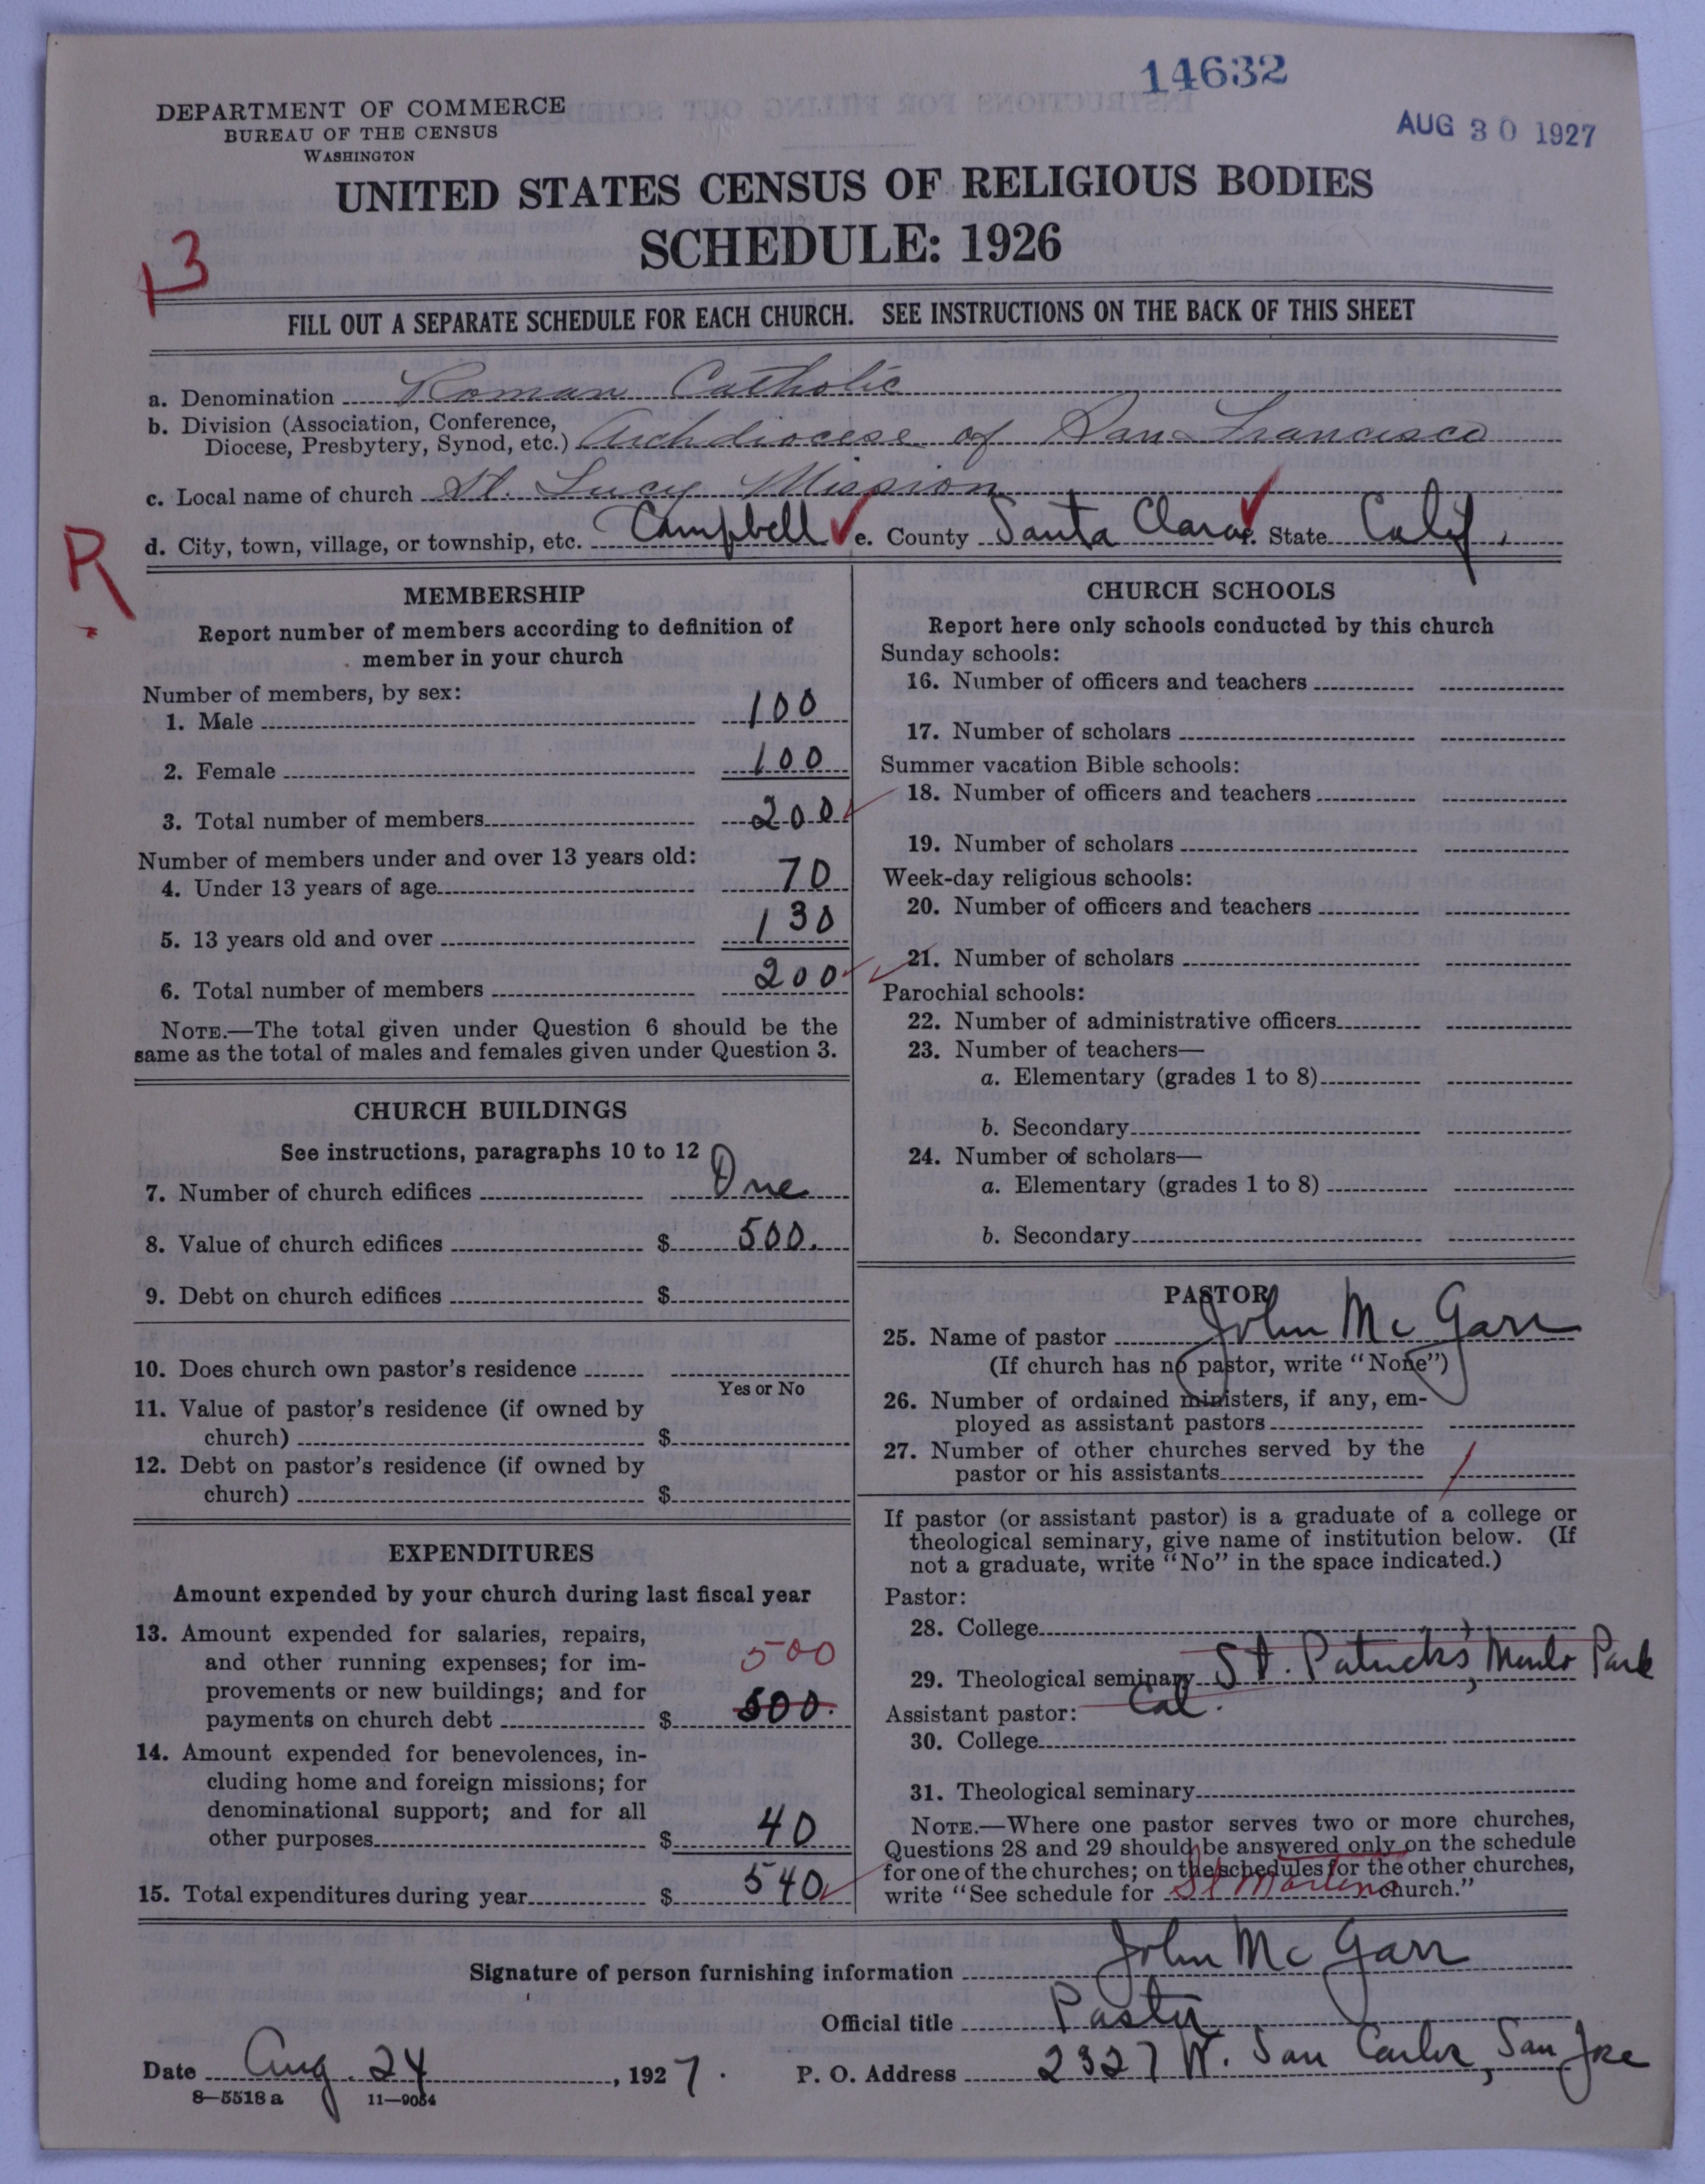 14632
AUG 30 1927
DEPARTMENT OF COMMERCE
BUREAU OF THE CENSUS
WASHINGTON
UNITED STATES CENSUS OF RELIGIOUS BODIES
SCHEDULE: 1926
13
FILL OUT A SEPARATE SCHEDULE FOR EACH CHURCH. SEE INSTRUCTIONS ON THE BACK OF THIS SHEET
a. Denomination Roman Catholic
b. Division (Association, Conference,
Diocese, Presbytery, Synod, etc.) Archdiocese of San Francisco
c. Local name of church St. Lucy Mission
d. City, town, village, or township, etc. Campbell e. County Santa Clara f. State Calif.
R
MEMBERSHIP
Report number of members according to definition of
member in your church
Number of members, by sex:
1. Male 100
2. Female 100
3. Total number of members 200
Number of members under and over 13 years old:
4. Under 13 years of age 70
5. 13 years old and over 130
6. Total number of members 200
NOTE.—The total given under Question 6 should be the
same as the total of males and females given under Question 3.
CHURCH BUILDINGS
See instructions, paragraphs 10 to 12
7. Number of church edifices One
8. Value of church edifices $ 500.
9. Debt on church edifices $
10. Does church own pastor's residence
Yes or No
11. Value of pastor's residence (if owned by
church) $
12. Debt on pastor's residence (if owned by
church) $
EXPENDITURES
Amount expended by your church during last fiscal year
13. Amount expended for salaries, repairs,
and other running expenses; for im-
provements or new buildings; and for 500
payments on church debt $ 500.
14. Amount expended for benevolences, in-
cluding home and foreign missions; for
denominational support; and for all
other purposes $ 40
15. Total expenditures during year $ 540
CHURCH SCHOOLS
Report here only schools conducted by this church
Sunday schools:
16. Number of officers and teachers
17. Number of scholars
Summer vacation Bible schools:
18. Number of officers and teachers
19. Number of scholars
Week-day religious schools:
20. Number of officers and teachers
21. Number of scholars
Parochial schools:
22. Number of administrative officers
23. Number of teachers—
a. Elementary (grades 1 to 8)
b. Secondary
24. Number of scholars—
a. Elementary (grades 1 to 8)
b. Secondary
PASTOR
25. Name of pastor John McGarr
(If church has no pastor, write "None")
26. Number of ordained ministers, if any, em-
ployed as assistant pastors
27. Number of other churches served by the
pastor or his assistants 1
If pastor (or assistant pastor) is a graduate of a college or
theological seminary, give name of institution below. (If
not a graduate, write "No" in the space indicated.)
Pastor:
28. College
29. Theological seminary St. Patrick's, Menlo Park
Cal.
Assistant pastor:
30. College
31. Theological seminary
NOTE.—Where one pastor serves two or more churches,
Questions 28 and 29 should be answered only on the schedule
for one of the churches; on the schedules for the other churches,
write "See schedule for St Martins church."
Signature of person furnishing information John McGarr
Official title Pastor
Date Aug. 24, 1927. P. O. Address 2327 W. San Carlos, San Jose
8—5518 a 11—9054